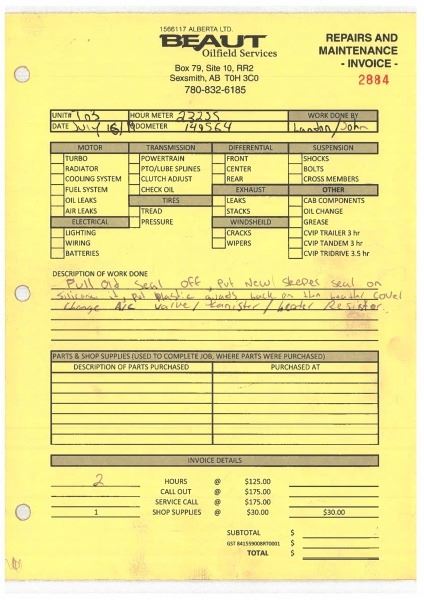 1566117 ALBERTA LTD.
BEAUT
Oilfield Services
Box 79, Site 10, RR2
Sexsmith, AB T0H 3C0
780-832-6185
REPAIRS AND
MAINTENANCE
- INVOICE -
2884
UNIT# HOUR METER 23235 WORK DONE BY
DATE July 16/ ODOMETER 149564 Landon/John
MOTOR TRANSMISSION DIFFERENTIAL SUSPENSION
TURBO POWERTRAIN FRONT SHOCKS
RADIATOR PTO/LUBE SPLINES CENTER BOLTS
COOLING SYSTEM CLUTCH ADJUST REAR CROSS MEMBERS
FUEL SYSTEM CHECK OIL EXHAUST OTHER
OIL LEAKS TIRES LEAKS CAB COMPONENTS
AIR LEAKS TREAD STACKS OIL CHANGE
ELECTRICAL PRESSURE WINDSHEILD GREASE
LIGHTING CRACKS CVIP TRAILER 3 hr
WIRING WIPERS CVIP TANDEM 3 hr
BATTERIES CVIP TRIDRIVE 3.5 hr
DESCRIPTION OF WORK DONE
Pull Old Seal Off, Put New Sleeper seal on
silicone it, put plastic guards back on then heater cover
change A/C valve/canister/heater Resister
PARTS & SHOP SUPPLIES (USED TO COMPLETE JOB, WHERE PARTS WERE PURCHASED)
DESCRIPTION OF PARTS PURCHASED PURCHASED AT
INVOICE DETAILS
2 HOURS @ $125.00
CALL OUT @ $175.00
SERVICE CALL @ $175.00
1 SHOP SUPPLIES @ $30.00 $30.00
SUBTOTAL $
GST 841559008RT0001 $
TOTAL $